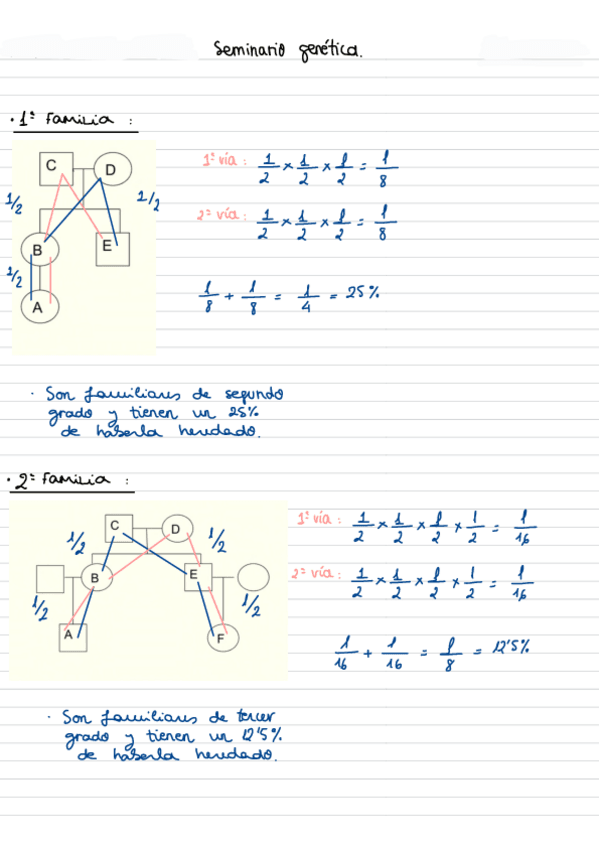 Seminario genética.
· 1ª Familia :
C
D
1/2
1/2
B
E
1/2
A
1ª vía : 1/2 × 1/2 × 1/2 = 1/8
2ª vía : 1/2 × 1/2 × 1/2 = 1/8
1/8 + 1/8 = 1/4 = 25%
· Son familiares de segundo
grado y tienen un 25%
de haberla heredado.
· 2ª Familia :
C
D
1/2
1/2
B
E
1/2
1/2
A
F
1ª vía : 1/2 × 1/2 × 1/2 × 1/2 = 1/16
2ª vía : 1/2 × 1/2 × 1/2 × 1/2 = 1/16
1/16 + 1/16 = 1/8 = 12'5%
· Son familiares de tercer
grado y tienen un 12'5%
de haberla heredado.